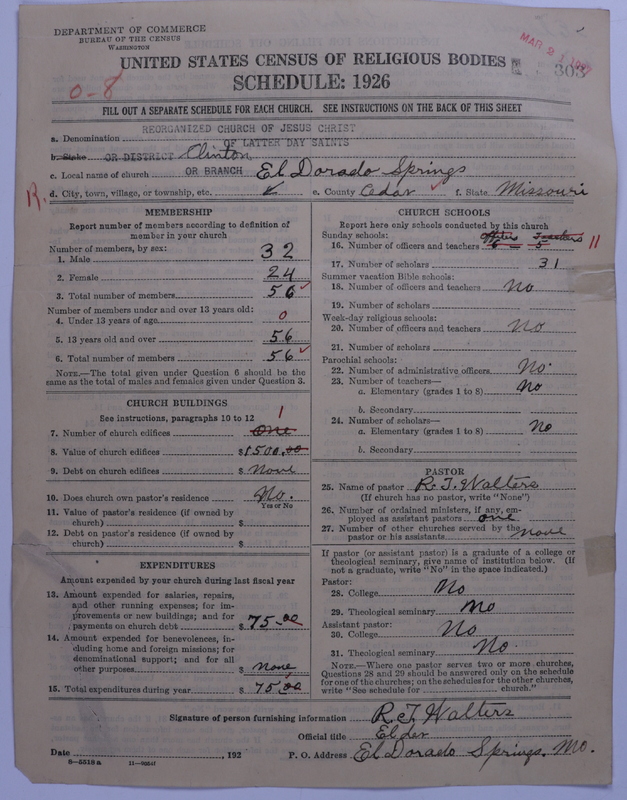 DEPARTMENT OF COMMERCE
BUREAU OF THE CENSUS
WASHINGTON
MAR 2
UNITED STATES CENSUS OF RELIGIOUS BODIES
303
SCHEDULE: 1926
0-8
FILL OUT A SEPARATE SCHEDULE FOR EACH CHURCH. SEE INSTRUCTIONS ON THE BACK OF THIS SHEET
REORGANIZED CHURCH OF JESUS CHRIST
a. Denomination
OF LATTER DAY SAINTS
b. Stake OR DISTRICT Clinton
c. Local name of church OR BRANCH El Dorado Springs
R.
d. City, town, village, or township, etc. ✓ e. County Cedar ✓ f. State Missouri
MEMBERSHIP
Report number of members according to definition of
member in your church
Number of members, by sex:
1. Male 32
2. Female 24
3. Total number of members 56 ✓
Number of members under and over 13 years old:
4. Under 13 years of age 0
5. 13 years old and over 56
6. Total number of members 56 ✓
NOTE.—The total given under Question 6 should be the
same as the total of males and females given under Question 3.
CHURCH BUILDINGS
See instructions, paragraphs 10 to 12
1
7. Number of church edifices One
8. Value of church edifices $1500.00
9. Debt on church edifices $ None
10. Does church own pastor's residence No.
Yes or No
11. Value of pastor's residence (if owned by
church) $
12. Debt on pastor's residence (if owned by
church) $
EXPENDITURES
Amount expended by your church during last fiscal year
13. Amount expended for salaries, repairs,
and other running expenses; for im-
provements or new buildings; and for
payments on church debt $ 75.00
14. Amount expended for benevolences, in-
cluding home and foreign missions; for
denominational support; and for all
other purposes $ None
15. Total expenditures during year $ 75.00
CHURCH SCHOOLS
Report here only schools conducted by this church
Sunday schools: Officers Teachers
16. Number of officers and teachers 6 – 5 11
17. Number of scholars 31
Summer vacation Bible schools:
18. Number of officers and teachers No
19. Number of scholars
Week-day religious schools:
20. Number of officers and teachers No
21. Number of scholars
Parochial schools:
22. Number of administrative officers No.
23. Number of teachers—
a. Elementary (grades 1 to 8) No
b. Secondary
24. Number of scholars—
a. Elementary (grades 1 to 8) No
b. Secondary
PASTOR
25. Name of pastor R. T. Walters
(If church has no pastor, write "None")
26. Number of ordained ministers, if any, em-
ployed as assistant pastors one
27. Number of other churches served by the
pastor or his assistants None
If pastor (or assistant pastor) is a graduate of a college or
theological seminary, give name of institution below. (If
not a graduate, write "No" in the space indicated.)
Pastor:
28. College No
29. Theological seminary No
Assistant pastor:
30. College No
31. Theological seminary No.
NOTE.—Where one pastor serves two or more churches,
Questions 28 and 29 should be answered only on the schedule
for one of the churches; on the schedules for the other churches,
write "See schedule for church."
Signature of person furnishing information R. T. Walters
Official title Elder
Date , 192 P. O. Address El Dorado Springs, Mo.
8—5518a